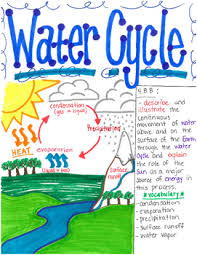 Water Cycle
condensation
(gas → liquid)
precipitation
HEAT
evaporation
(liquid → gas)
4.8B:
- describe and
illustrate the
continuous
movement of water
above and on the
surface of the Earth
through the water
Cycle and explain
the role of the
Sun as a major
source of energy in
this process.
*vocabulary*
-condensation
-evaporation
-precipitation
- surface runoff
- water vapor